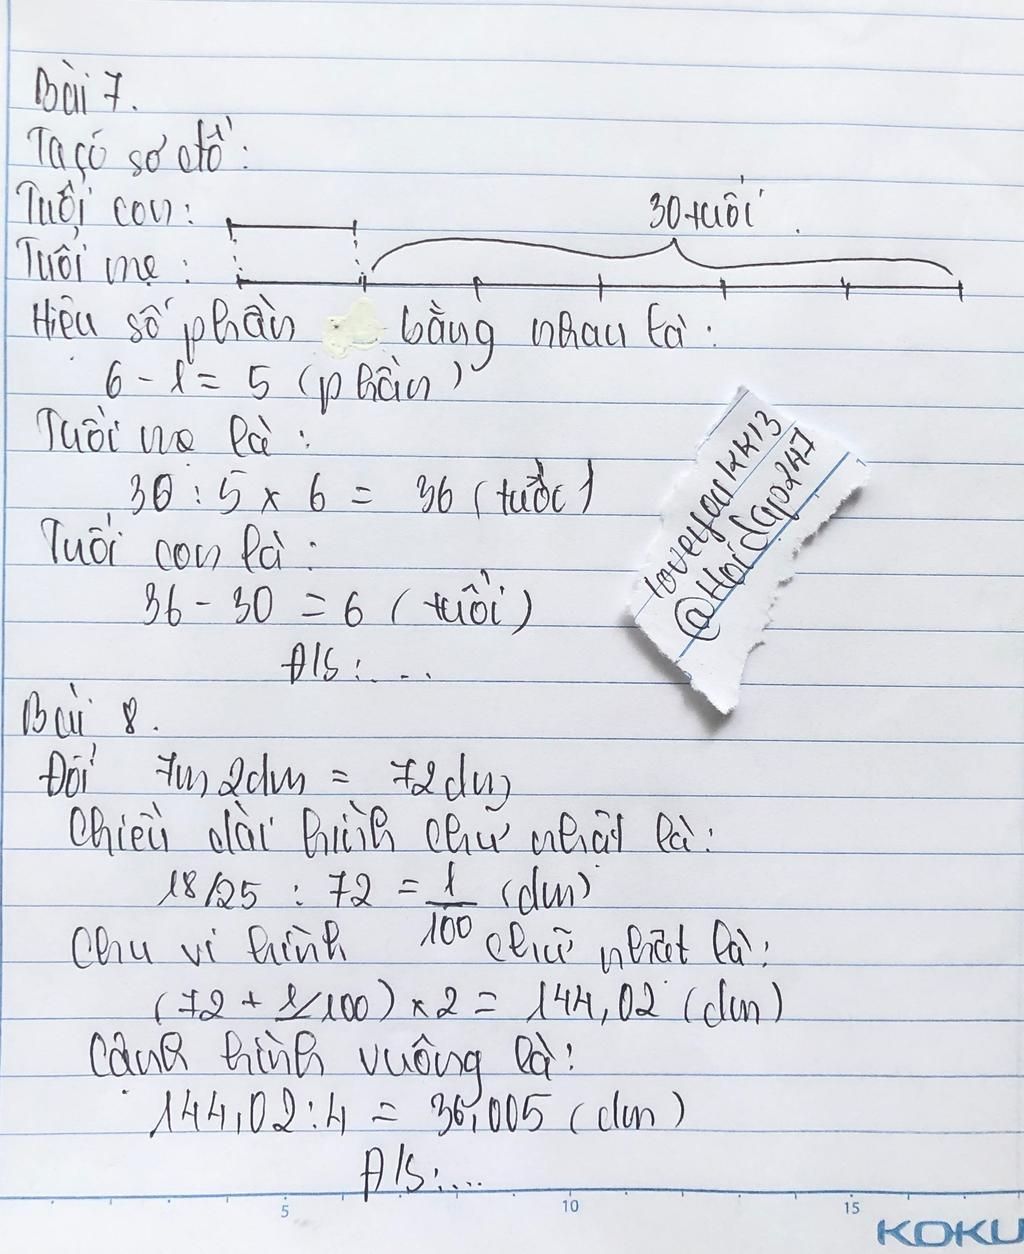 Bài 7.
Ta có sơ đồ:
30 tuổi
Tuổi con:
Tuổi mẹ:
Hiệu số phần bằng nhau là:
6 - 1 = 5 (phần)
Tuổi mẹ là:
30 : 5 x 6 = 36 (tuổi)
Tuổi con là:
36 - 30 = 6 (tuổi)
Đ/S:...
loveyoukk13
@Hoidap247
Bài 8.
Đổi 7m 2dm = 72dm
Chiều dài hình chữ nhật là:
18/25 : 72 = 1/100 (dm)
Chu vi hình chữ nhật là:
(72 + 1/100) x 2 = 144,02 (dm)
Cạnh hình vuông là:
144,02 : 4 = 36,005 (dm)
Đ/S:...
5 10 15
KOKU